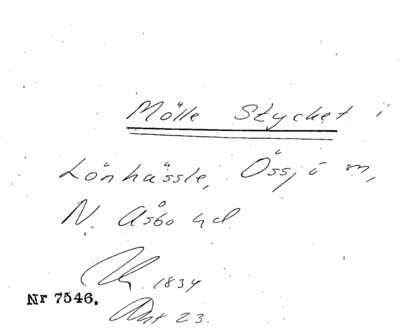 Mölle Stycket i
Lönhässle, Össjö m,
N. Åsbo hd
1834
Nr 7546.
Ant 23.